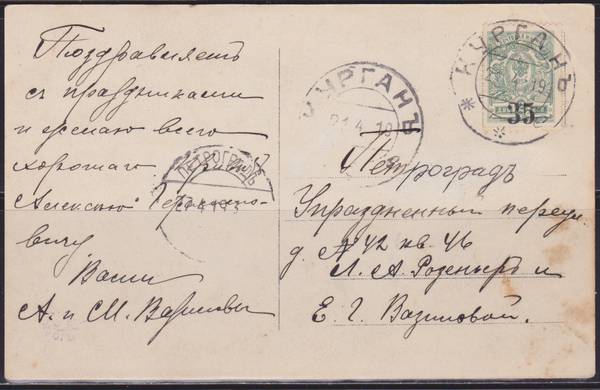 Поздравляемъ
съ праздниками
и желаемъ всего
хорошаго.
Алексѣю
вичу
Ваши
А. и М.
КУРГАНЪ
35
КУРГАНЪ
21 4 19
ПЕТРОГРАДЪ
Петроградъ
Упраздненный переул.
д. № 42 кв. 46
Л. А. и
Е. Г. Вазиловой.